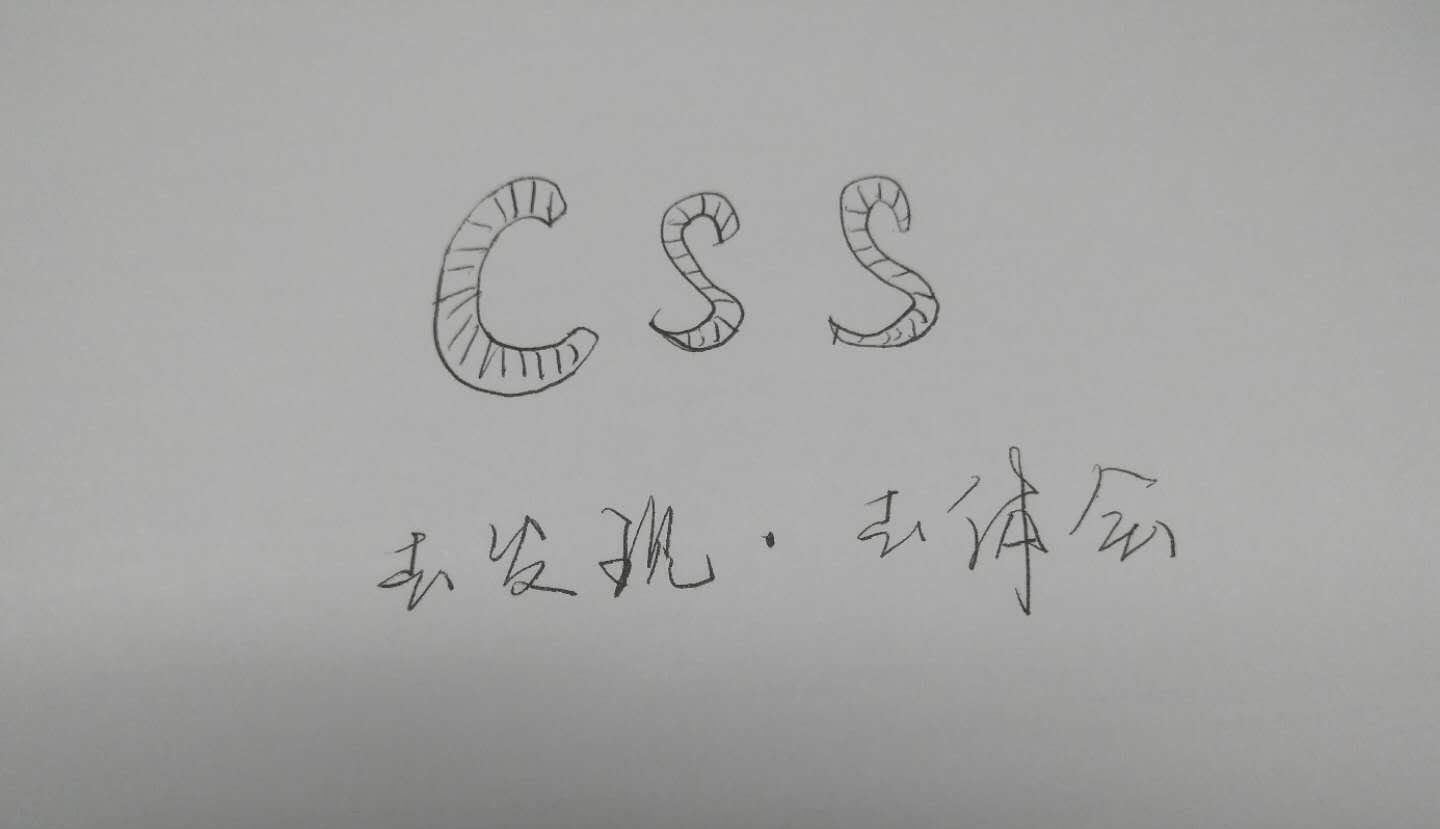 CSS
去发现·去体会